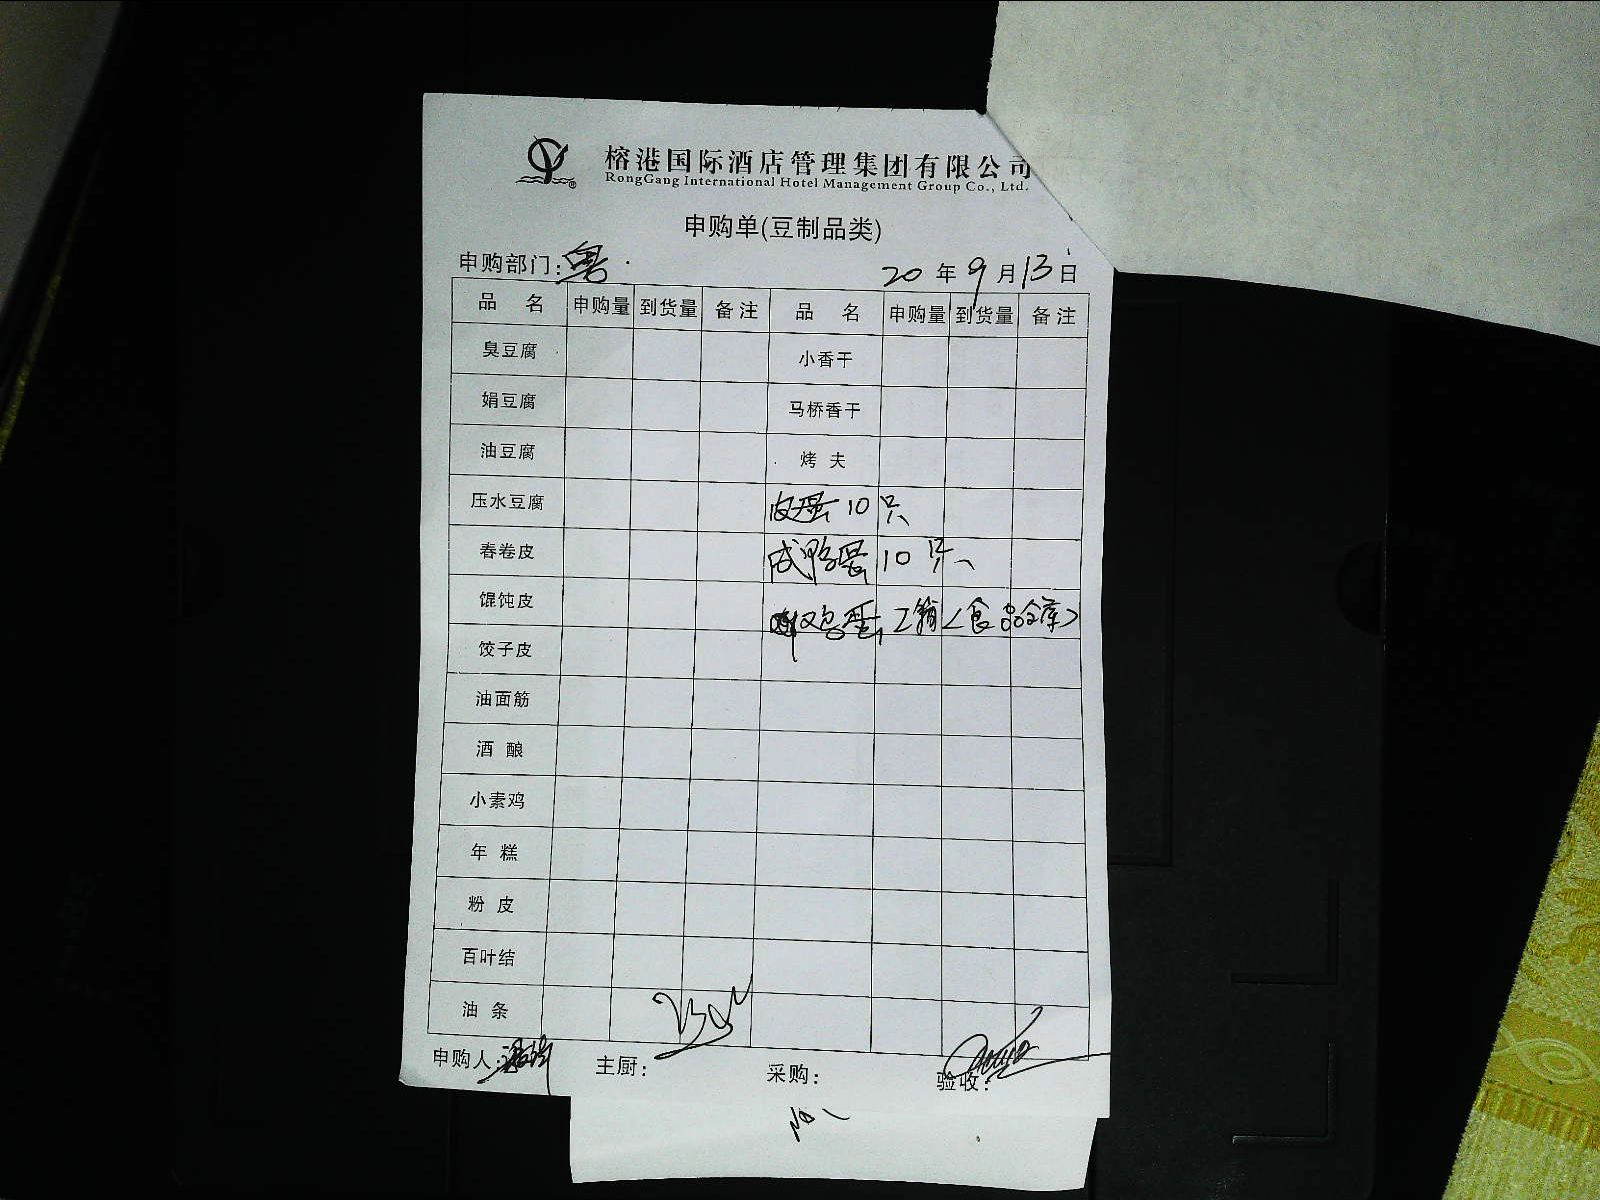 榕港国际酒店管理集团有限公司
RongGang International Hotel Management Group Co., Ltd.
申购单(豆制品类)
申购部门: 粤 20 年 9 月 13 日
品 名 申购量 到货量 备注 品 名 申购量 到货量 备注
臭豆腐 小香干
娟豆腐 马桥香干
油豆腐 烤夫
压水豆腐 皮蛋 10 只
春卷皮 咸鸭蛋 10 只
馄饨皮 鸡蛋 2箱(食品仓库)
饺子皮
油面筋
酒酿
小素鸡
年糕
粉皮
百叶结
油条
申购人: 主厨: 采购: 验收: